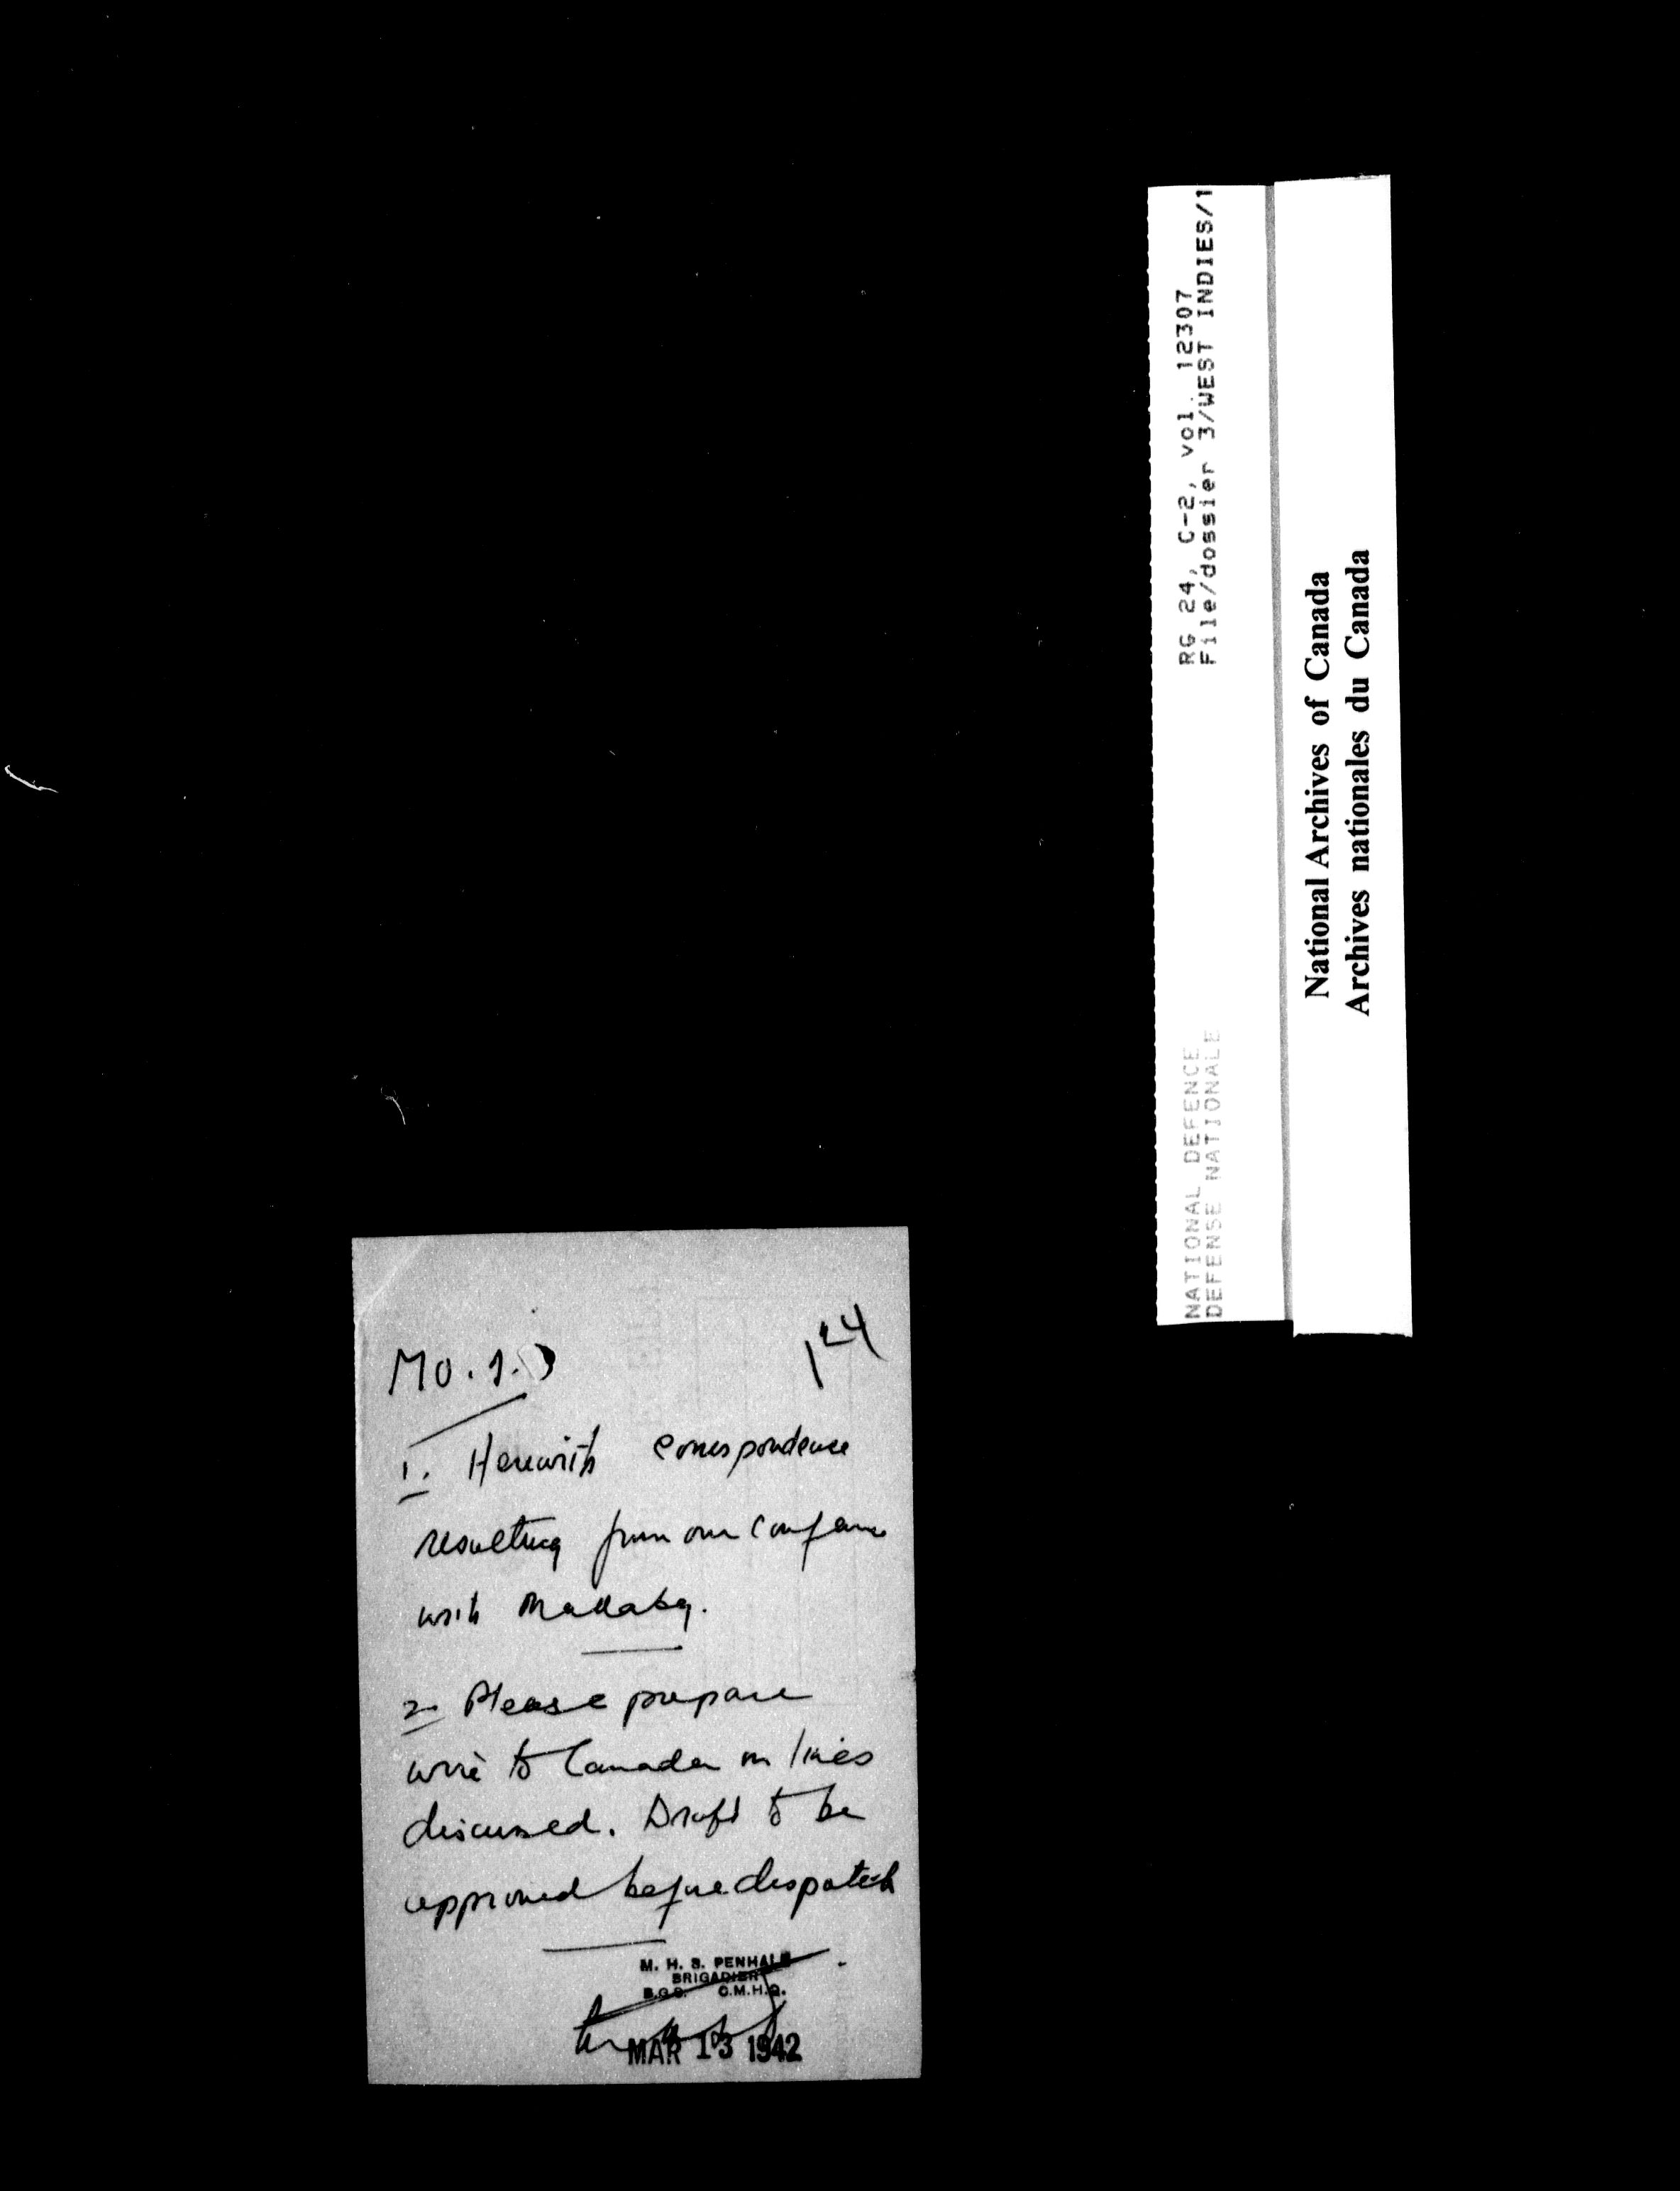 RG 24, C-2, vol. 12307
File/dossier 3/WEST INDIES/1
NATIONAL DEFENCE
DEFENSE NATIONALE
National Archives of Canada
Archives nationales du Canada
124
MO. 1.
1. Herewith correspondence
resulting from our conference
with Mallaby.
2 Please prepare
wire to Canada on lines
discussed. Draft to be
approved before despatch
M. H. S. PENHALE
BRIGADIER
B.G.S. C.M.H.Q.
MAR 13 1942